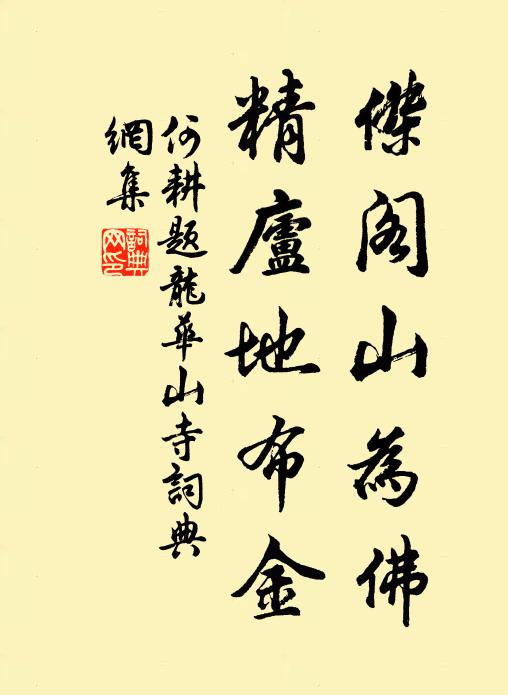 傑阁山為佛
精廬地布金
何耕题龍華山寺詞典
網集
詞典網印